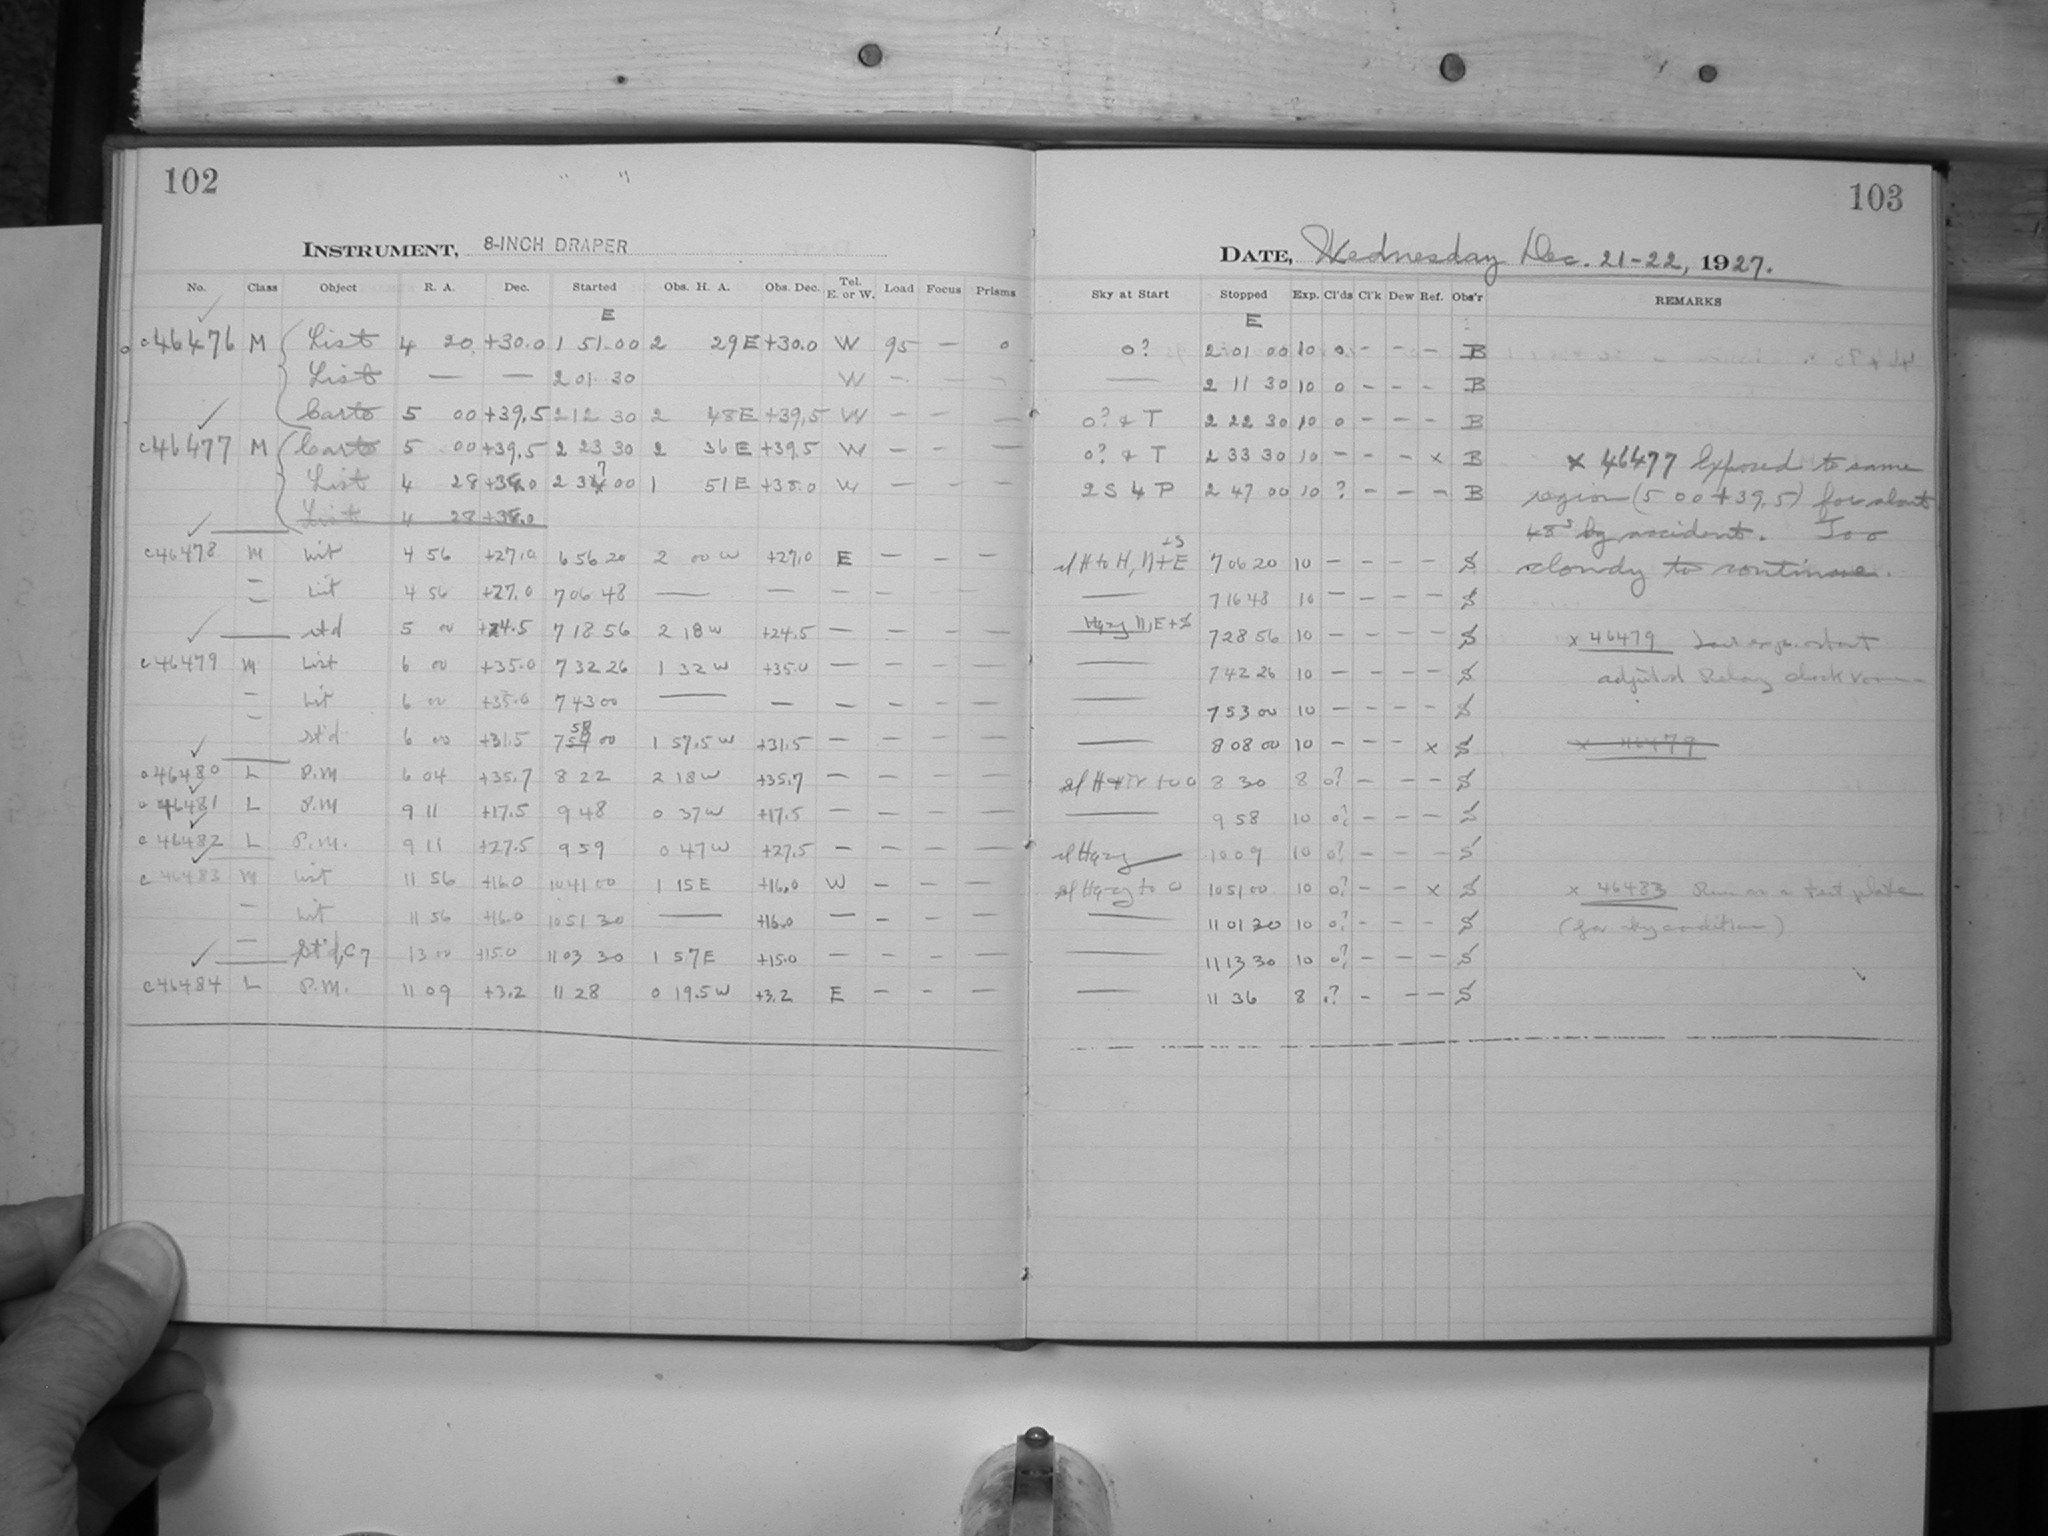 102
103
INSTRUMENT, 8-INCH DRAPER
DATE, Wednesday Dec. 21-22, 1927.
No. Class Object R. A. Dec. Started Obs. H. A. Obs. Dec. Tel. E. or W. Load Focus Prisms Sky at Start Stopped Exp. Cl'ds Cl'k Dew Ref. Obs'r REMARKS
E E
c46476 M List 4 20 +30.0 1 51 00 2 29 E +30.0 W 95 — 0 0? 2 01 00 10 0 - - - B
List — — 2 01 30 W — — — — 2 11 30 10 0 - - - B
Carto 5 00 +39.5 2 12 30 2 48 E +39.5 W — — — 0? & T 2 22 30 10 0 - - - B
c46477 M Carto 5 00 +39.5 2 23 30 2 36 E +39.5 W — — — 0? & T 2 33 30 10 - - - x B x 46477 Exposed to same
List 4 28 2 00 1 51 E W — — — 2 S 4 P 2 47 00 10 ? - - - B region (5 00 +39.5) for about
List 4 28 48s by accident. Too
c46478 M List 4 56 +27.0 6 56 20 2 00 W +27.0 E — — — sl H to H, N+E +S 7 06 20 10 - - - - S cloudy to continue.
— List 4 56 +27.0 7 06 48 — — — — — — — 7 16 48 10 - - - - S
— std 5 00 +24.5 7 18 56 2 18 W +24.5 — — — — Hazy N, E+S 7 28 56 10 - - - - S x 46479
c46479 M List 6 00 +35.0 7 32 26 1 32 W +35.0 — 7 42 26 10 - - - - S adjusted Relay clock
— List 6 00 +35.0 7 43 00 — — — — — — — 7 53 00 10 - - - - S
— st'd 6 00 +31.5 7 58 00 1 57.5 W +31.5 — — — — — 8 08 00 10 - - - x S x 46479
c46480 L P.M 6 04 +35.7 8 22 2 18 W +35.7 — — — — 8 30 8 0? - - - S
c46481 L P.M 9 11 +17.5 9 48 0 37 W +17.5 — — — — — 9 58 10 0? - - - S
c46482 L P.M. 9 11 +27.5 9 59 0 47 W +27.5 — — — — sl Hazy 10 09 10 0? - - - S
c46483 M List 11 56 +16.0 10 41 00 1 15 E +16.0 W — — — sl Hazy to 0 10 51 00 10 0? - - x S x 46483 Run as a test plate
— List 11 56 +16.0 10 51 30 — +16.0 — — — — — 11 01 30 10 0? - - - S (for condition)
— St'd, C7 13 00 +15.0 11 03 30 1 57 E +15.0 — — — — — 11 13 30 10 0? - - - S
c46484 L P.M. 11 09 +3.2 11 28 0 19.5 W +3.2 E — — — — 11 36 8 0? - - - S